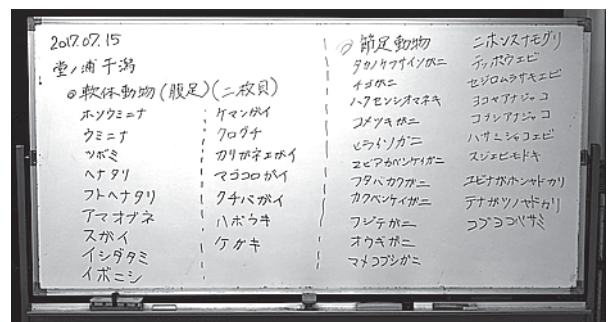 2017.07.15
堂ノ浦干潟
◎軟体動物(腹足)(二枚貝)
ホソウミニナ
ウミニナ
ツボミ
ヘナタリ
フトヘナタリ
アマオブネ
スガイ
イシダタミ
イボニシ
ケマンガイ
クログチ
カリガネエガイ
マゴコロガイ
クチバガイ
ハボウキ
ケガキ
節足動物
タカノケフサイソガニ
チゴガニ
ハクセンシオマネキ
コメツキガニ
ヒライソガニ
ユビアカベンケイガニ
フタバカクガニ
カクベンケイガニ
フジテガニ
オウギガニ
マメコブシガニ
ニホンスナモグリ
テッポウエビ
セジロムラサキエビ
ヨコヤアナジャコ
コブシアナジャコ
ハサミシャコエビ
スジエビモドキ
ユビナガホンヤドカリ
テナガツノヤドカリ
コブヨコバサミ